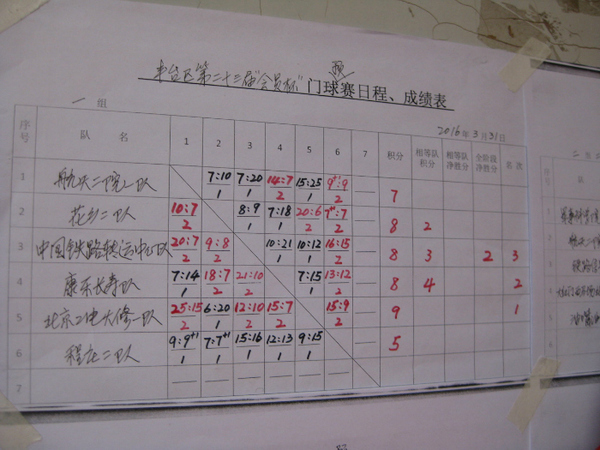 预
丰台区第二十三届"会员杯"门球赛日程、成绩表
一 组
2016年3月31日
序号 队 名 1 2 3 4 5 6 7 积分 相等队积分 相等队净胜分 全阶段净胜分 名次
1 航天二院二队 7:10 7:20 14:7 15:25 9+1:9 —
1 1 2 1 2 7
2 花乡二队 10:7 8:9 7:18 20:6 7+1:7 —
2 1 1 2 2 8 2
3 20:7 9:8 10:21 10:12 16:15 —
2 2 1 1 2 8 3 2 3
4 康乐长寿队 7:14 18:7 21:10 7:15 13:12 —
1 2 2 1 2 8 4 2
5 25:15 6:20 12:10 15:7 15:9 —
2 1 2 2 2 9 1
6 程庄二队 9:9+1 7:7+1 15:16 12:13 9:15
1 1 1 1 1 5
7 — — — — — —
二
队
1
2
3
4
5